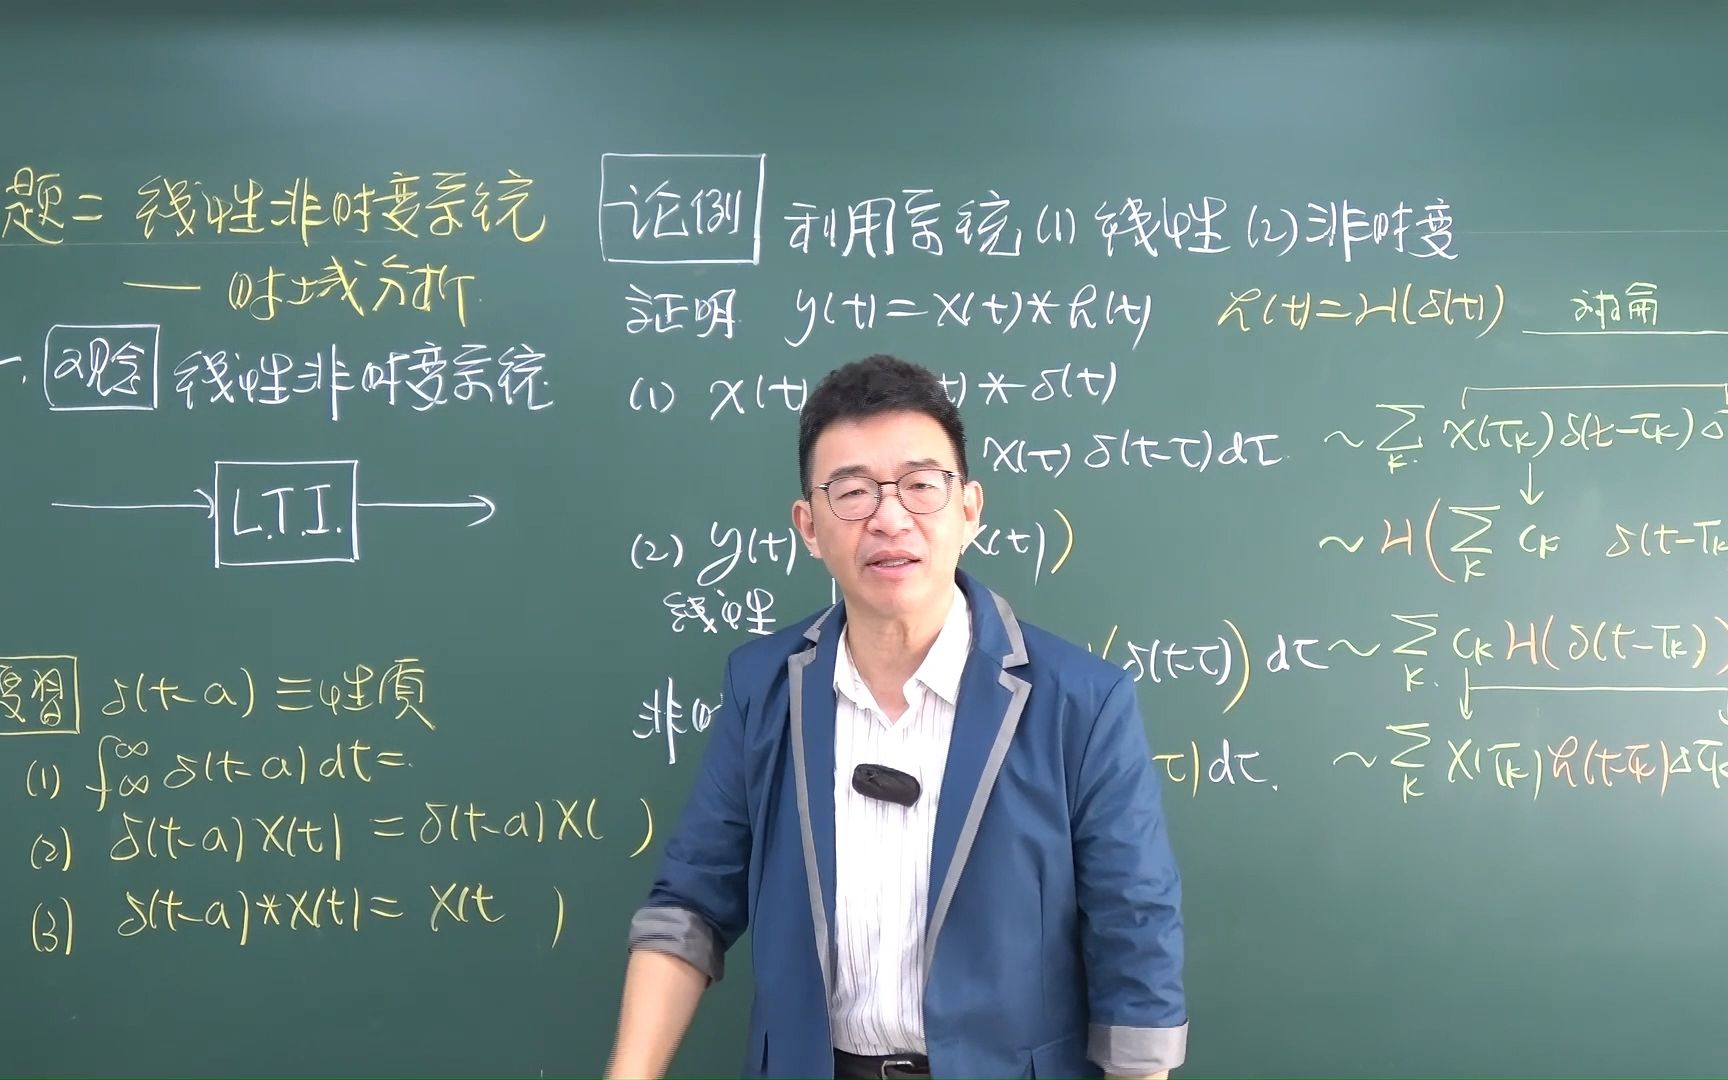 题二 线性非时变系统
— 时域分析
一. 观念 线性非时变系统
L.T.I.
复習 δ(t-a) 三性质
(1) ∫_∞^∞ δ(t-a) dt =
(2) δ(t-a) X(t) = δ(t-a) X( )
(3) δ(t-a) * X(t) = X(t )
论例 利用系统 (1) 线性 (2) 非时变
证明 y(t) = x(t) * h(t) h(t) = H(δ(t))
(1) x(t) t) * δ(t)
x(τ) δ(t-τ) dτ ~ Σ_k x(τ_k) δ(t-τ_k) Δ
(2) y(t) x(t))
~ H(Σ_k c_k δ(t-τ_k
线性
(δ(t-τ)) dτ ~ Σ_k c_k H(δ(t-τ_k))
非时
τ) dτ. ~ Σ_k x(τ_k) h(t-τ_k) Δτ_k